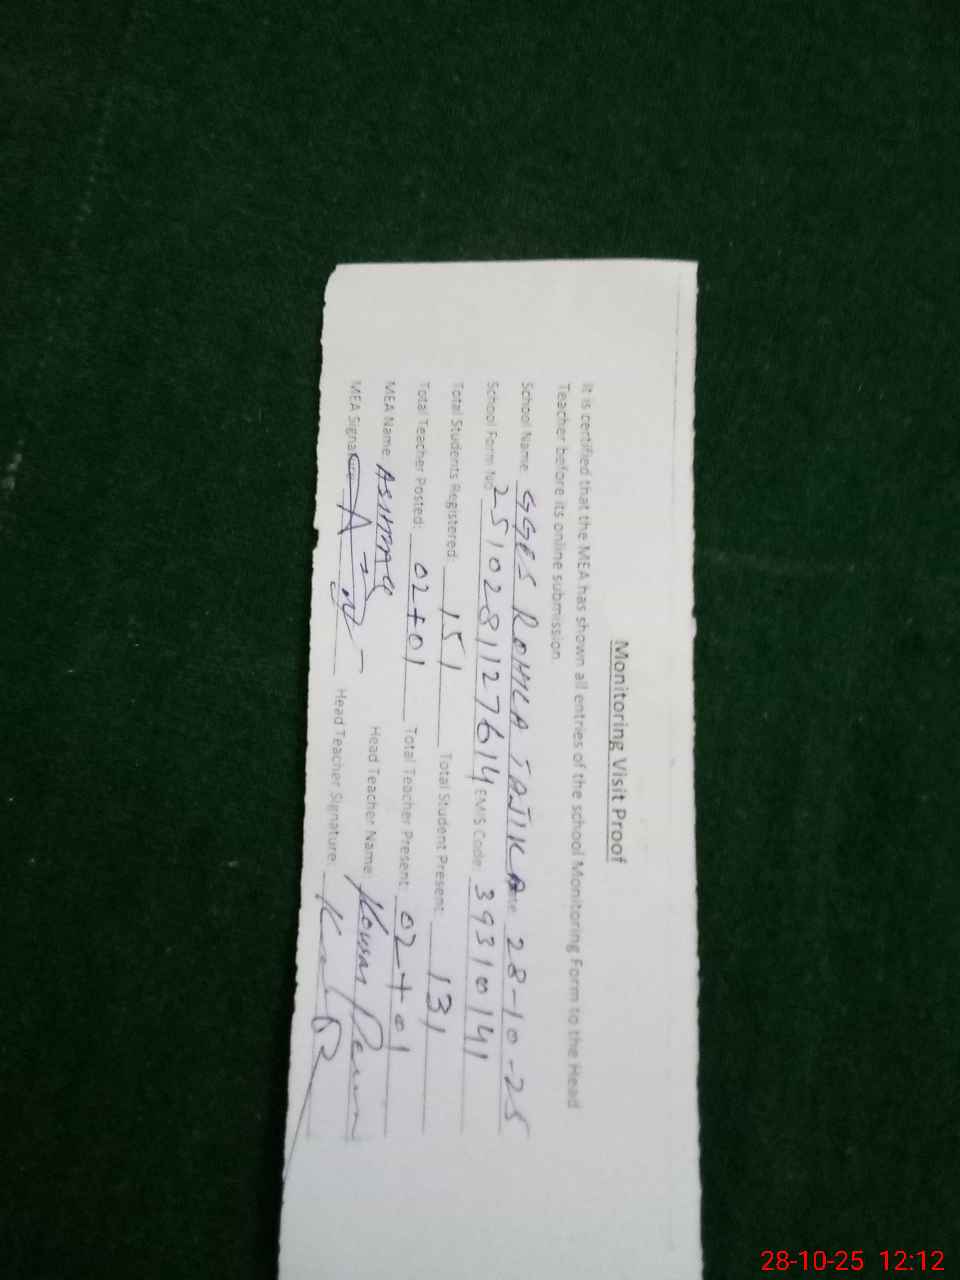 Monitoring Visit Proof
It is certified that the MEA has shown all entries of the school Monitoring Form to the Head
Teacher before its online submission.
School Name: GGES ROHLA TAJIKA Date: 28-10-25
School Form No 2510281127614 EMIS Code: 39310141
Total Students Registered: 151 Total Student Present: 131
Total Teacher Posted: 02+01 Total Teacher Present: 02+01
MEA Name: Head Teacher Name: Kousar
MEA Signature Head Teacher Signature:
28-10-25 12:12